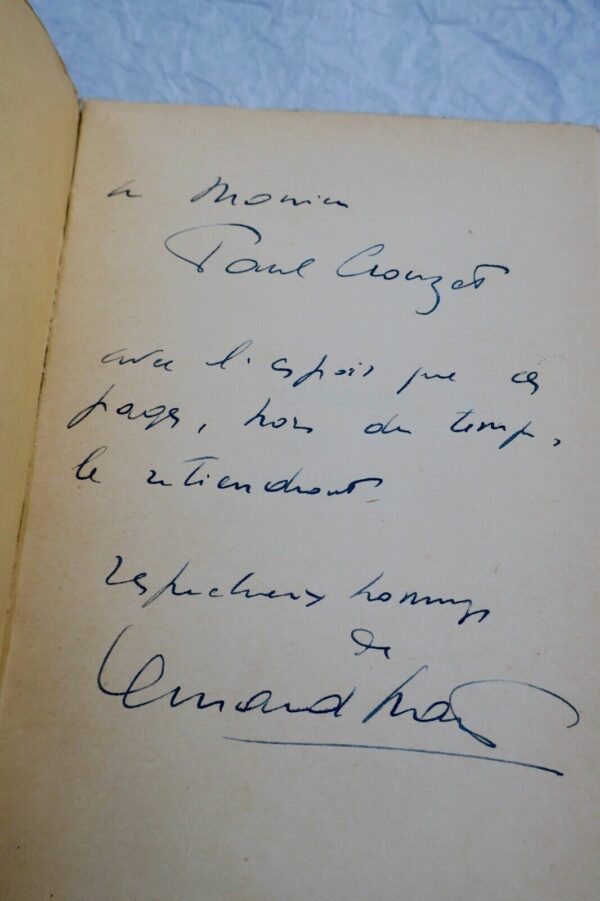 à Monsieur
Paul Crouzet
avec l'espoir que ces
pages, hors du temps,
le retiendront
respectueux hommage
de